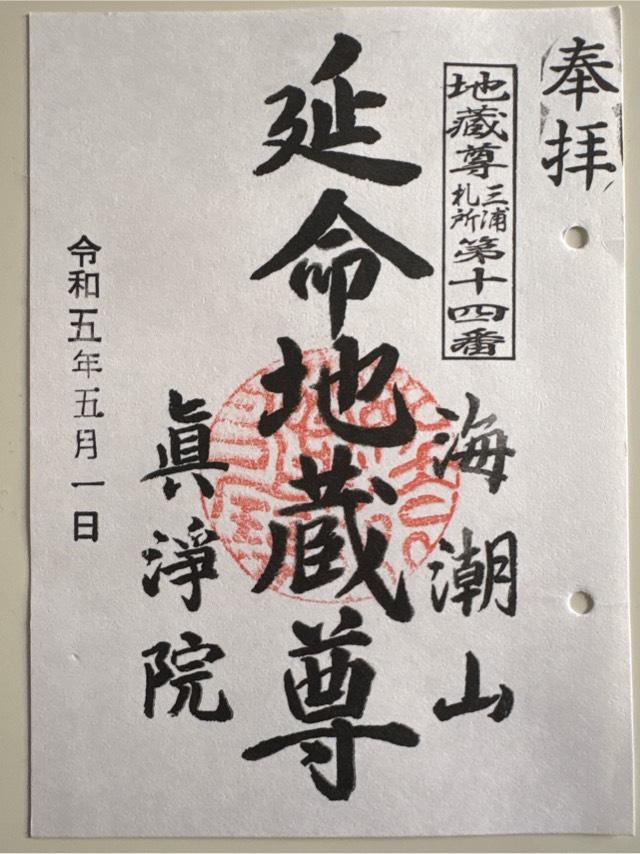 奉拝
地蔵尊三浦札所第十四番
海潮山
延命地蔵尊
眞淨院
令和五年五月一日